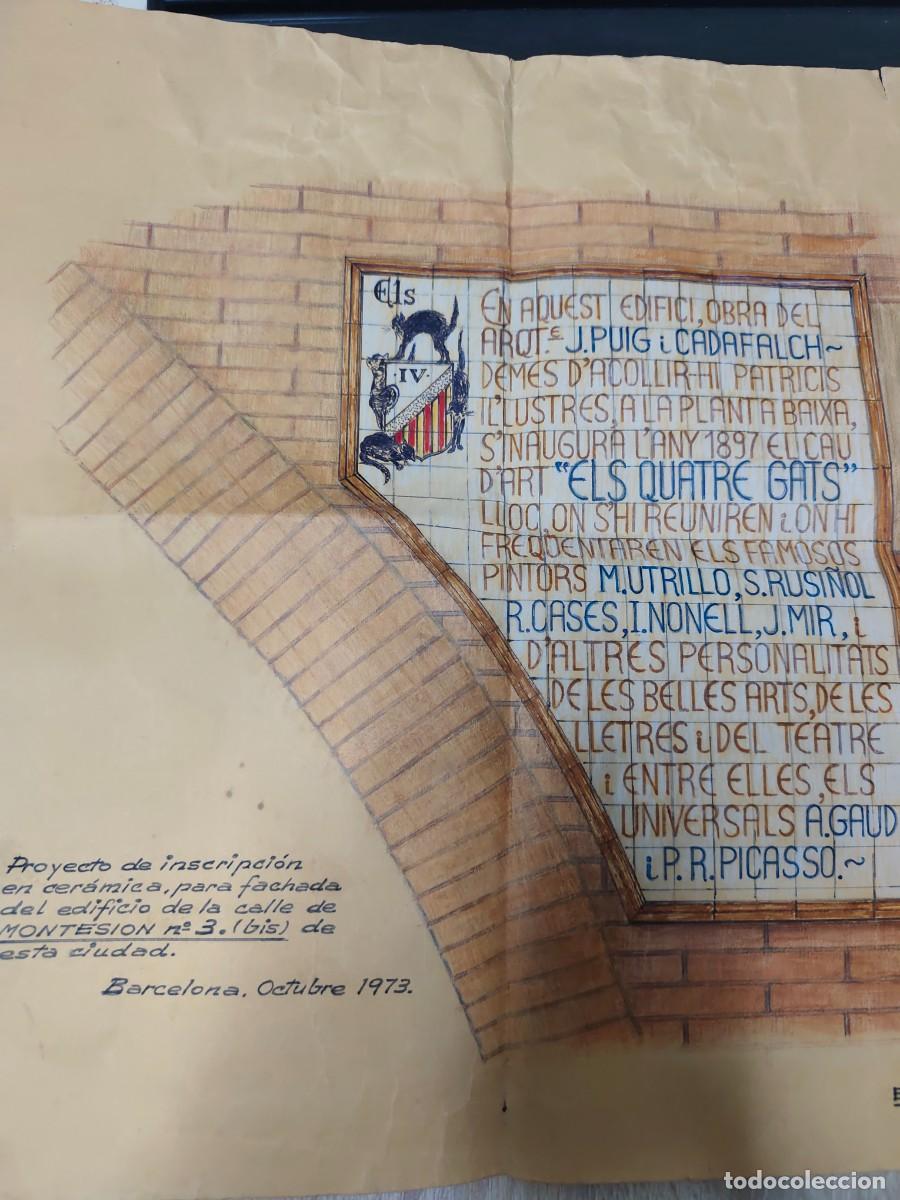 Els
·IV·
EN AQUEST EDIFICI, OBRA DEL
ARQT.E J. PUIG i CADAFALCH~
DEMES D'ACOLLIR-HI PATRICIS
IL'LUSTRES, A LA PLANTA BAIXA,
S'INAUGURÀ L'ANY 1897 EL CAU
D'ART "ELS QUATRE GATS"
LLOC, ON S'HI REUNIREN i ON HI
FREQÜENTAREN ELS FAMOSOS
PINTORS M. UTRILLO, S. RUSIÑOL
R. CASES, I. NONELL, J. MIR, i
D'ALTRES PERSONALITATS
DE LES BELLES ARTS, DE LES
LLETRES i DEL TEATRE
i ENTRE ELLES, ELS
UNIVERSALS A. GAUD
i P. R. PICASSO.~
Proyecto de inscripción
en cerámica, para fachada
del edificio de la calle de
MONTESION nº 3. (bis) de
esta ciudad.
Barcelona, Octubre 1973.
todocoleccion